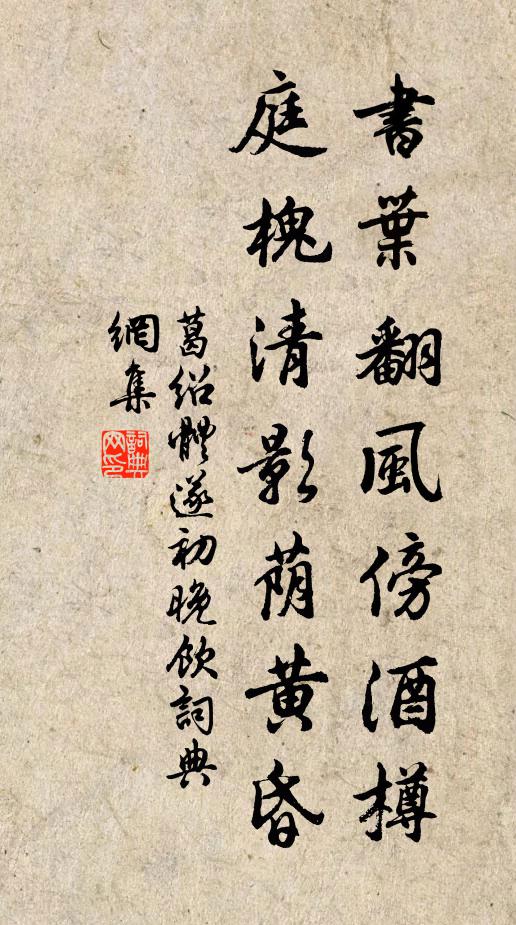 書葉翻風傍酒樽
庭槐清影荫黄昏
葛绍體遂初晚飲詞典
網集
詞典
网印